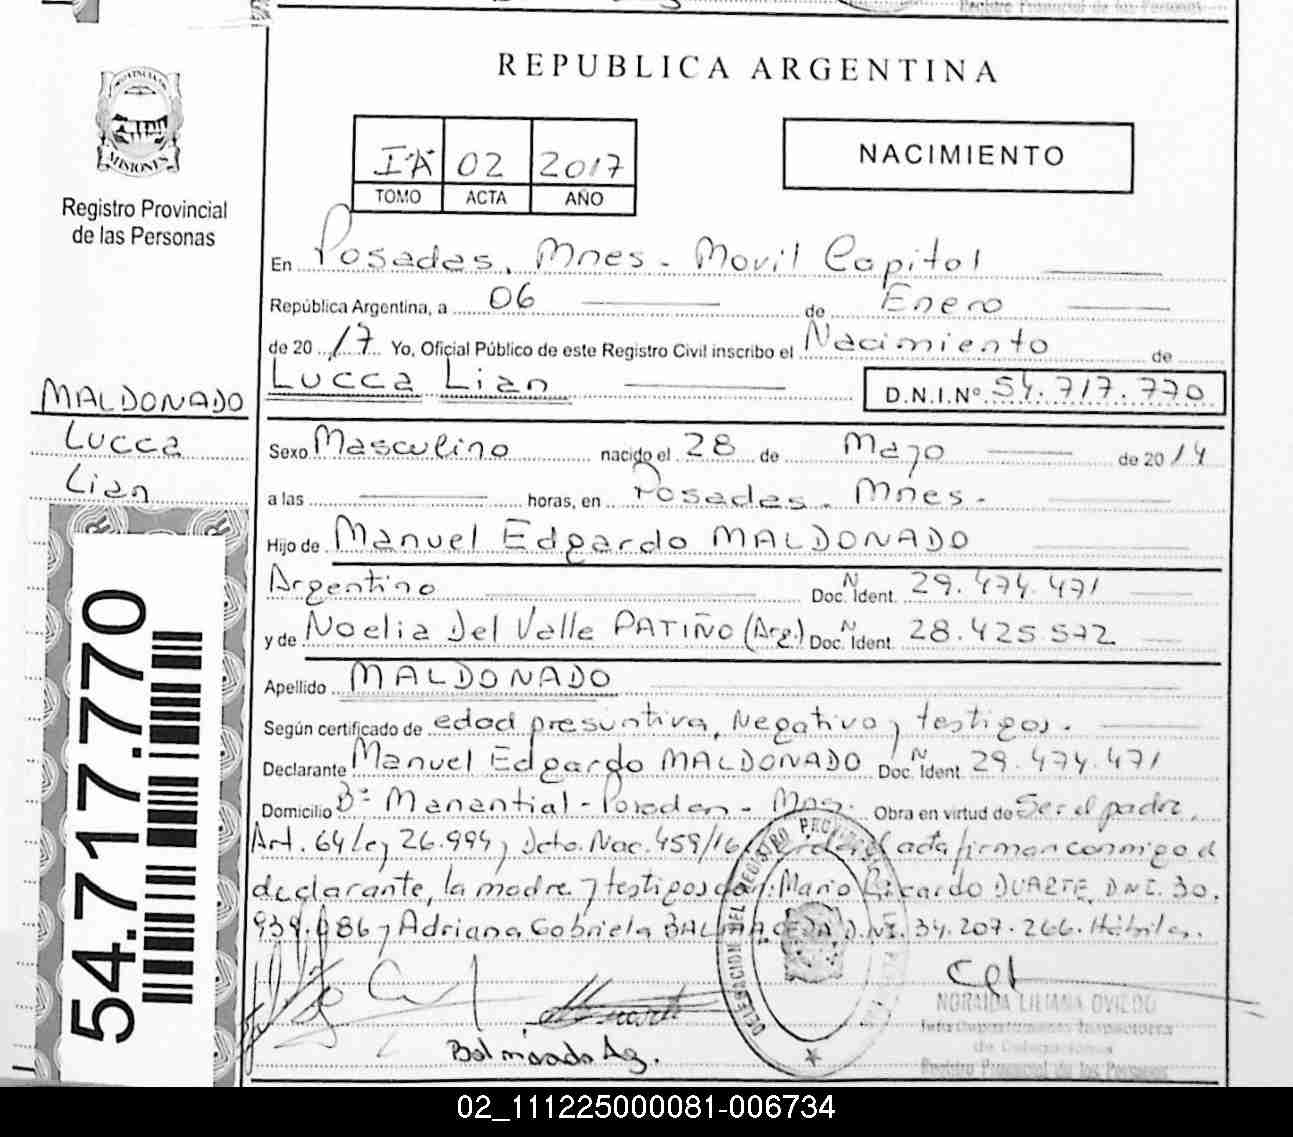 REPUBLICA ARGENTINA
MISIONES
Registro Provincial
de las Personas
IºA 02 2017
TOMO ACTA AÑO
NACIMIENTO
En Posadas, Mnes - Movil Capital
República Argentina, a 06 de Enero
de 20 17 Yo, Oficial Público de este Registro Civil inscribo el Nacimiento de
Lucca Lian D.N.I.Nº 54.717.770
MALDONADO
Lucca
Lian
Sexo Masculino nacido el 28 de Mayo de 20 14
a las horas, en Posadas. Mnes -
Hijo de Manuel Edgardo MALDONADO
Argentino Doc. Ident. 29.474.471
y de Noelia Del Valle PATIÑO (Arg.) Doc. Ident. 28.425.572
Apellido MALDONADO
Según certificado de edad presuntiva, Negativo y testigos.
Declarante Manuel Edgardo MALDONADO Doc. Ident. 29.474.471
Domicilio Bº Manantial - Posadas - Mnes. Obra en virtud de Ser el padre.
Art. 64 ley 26.994 y Dcto. Nac. 459/16 acta firman conmigo el
declarante, la madre y testigos don: Mario Ricardo DUARTE, DNI. 30.
939.686 y Adriana Gabriela BALMACEDA D.NI. 34.207.266. Hábiles.
DELEGACION DEL REGISTRO PROVINCIAL
NORAIDA LILIANA OVIEDO
de Delegaciones
Registro Provincial de las Personas
54.717.770
02_111225000081-006734